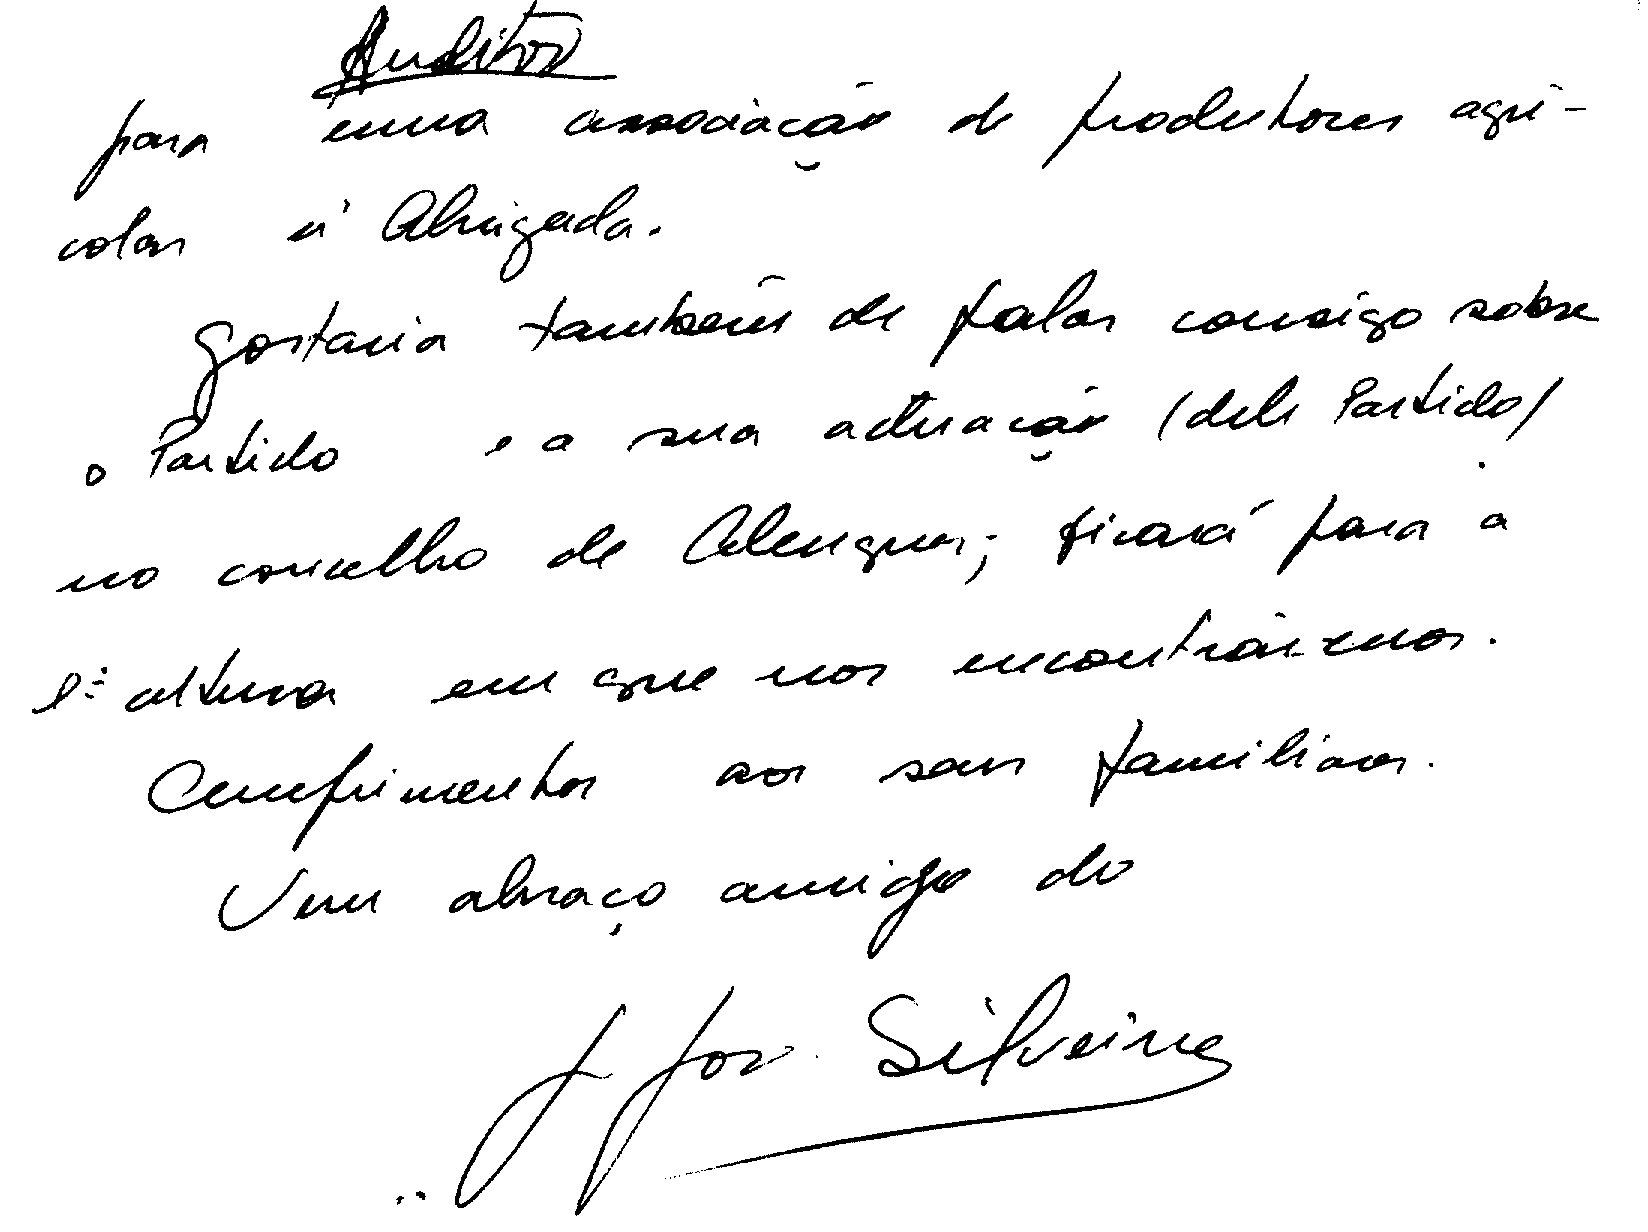 Auditor
para uma associação de produtores agrí-
colas n' Abrigada.
Gostaria também de falar consigo sobre
o Partido e a sua actuação (dele Partido)
no concelho de Alenquer; ficará para a
1ª altura em que nos encontrármos.
Cumprimentos aos seus familiares.
Um abraço amigo do
Silveira